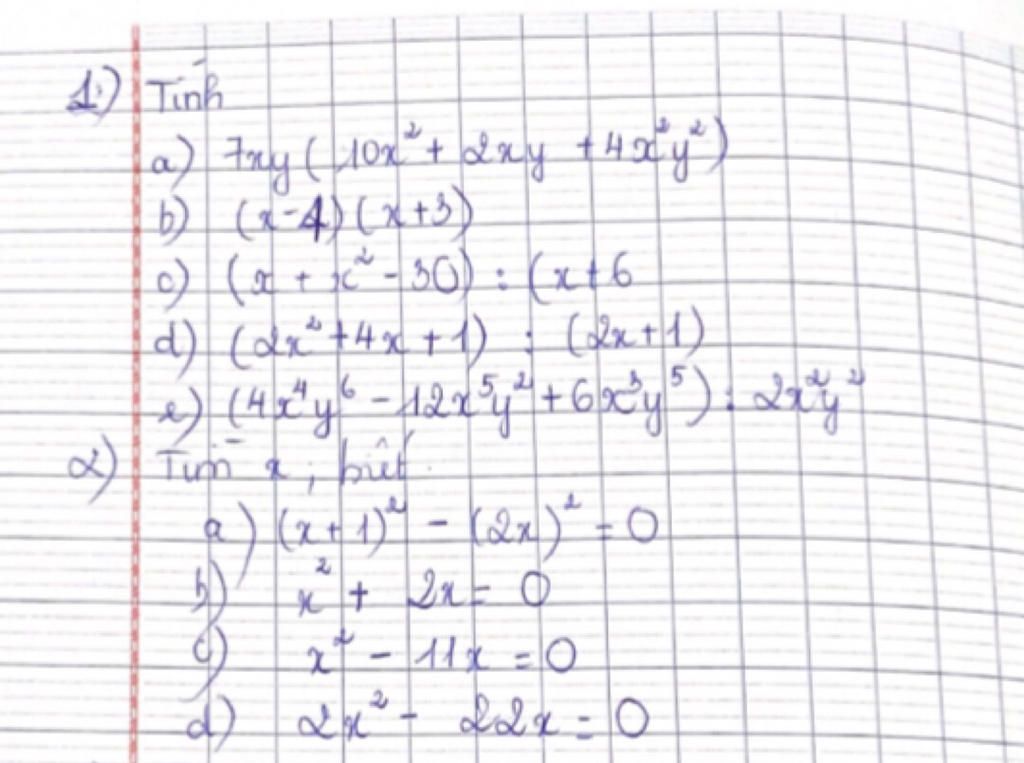 1.) Tính
a) 7xy ( 10x² + 2xy + 4x²y² )
b) (x - 4) (x + 3)
c) (x + x² - 30) : (x + 6
d) (2x² + 4x + 1) : (2x + 1)
e) (4x⁴y⁶ - 12x⁵y² + 6x³y⁵) : 2x²y²
2) Tìm x, biết
a) (x + 1)² - (2x)² = 0
b) x² + 2x = 0
c) x² - 11x = 0
d) 2x² - 22x = 0